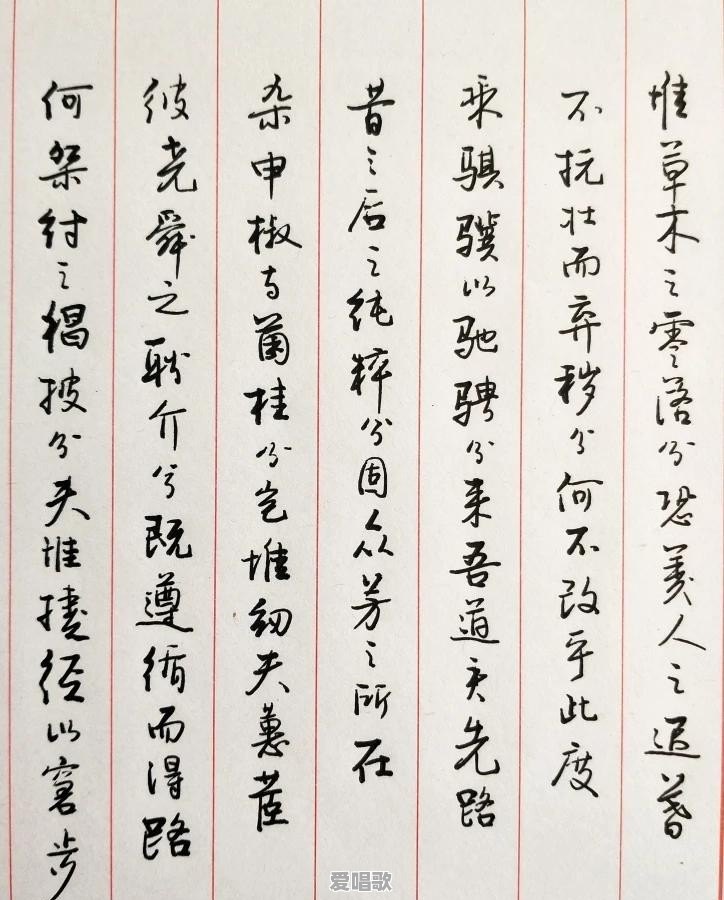 惟草木之零落兮恐美人之迟暮
不抚壮而弃秽兮何不改乎此度
乘骐骥以驰骋兮来吾道夫先路
昔三后之纯粹兮固众芳之所在
杂申椒与菌桂兮岂惟纫夫蕙茝
彼尧舜之耿介兮既遵循而得路
何桀纣之猖披兮夫惟捷径以窘步
爱唱歌